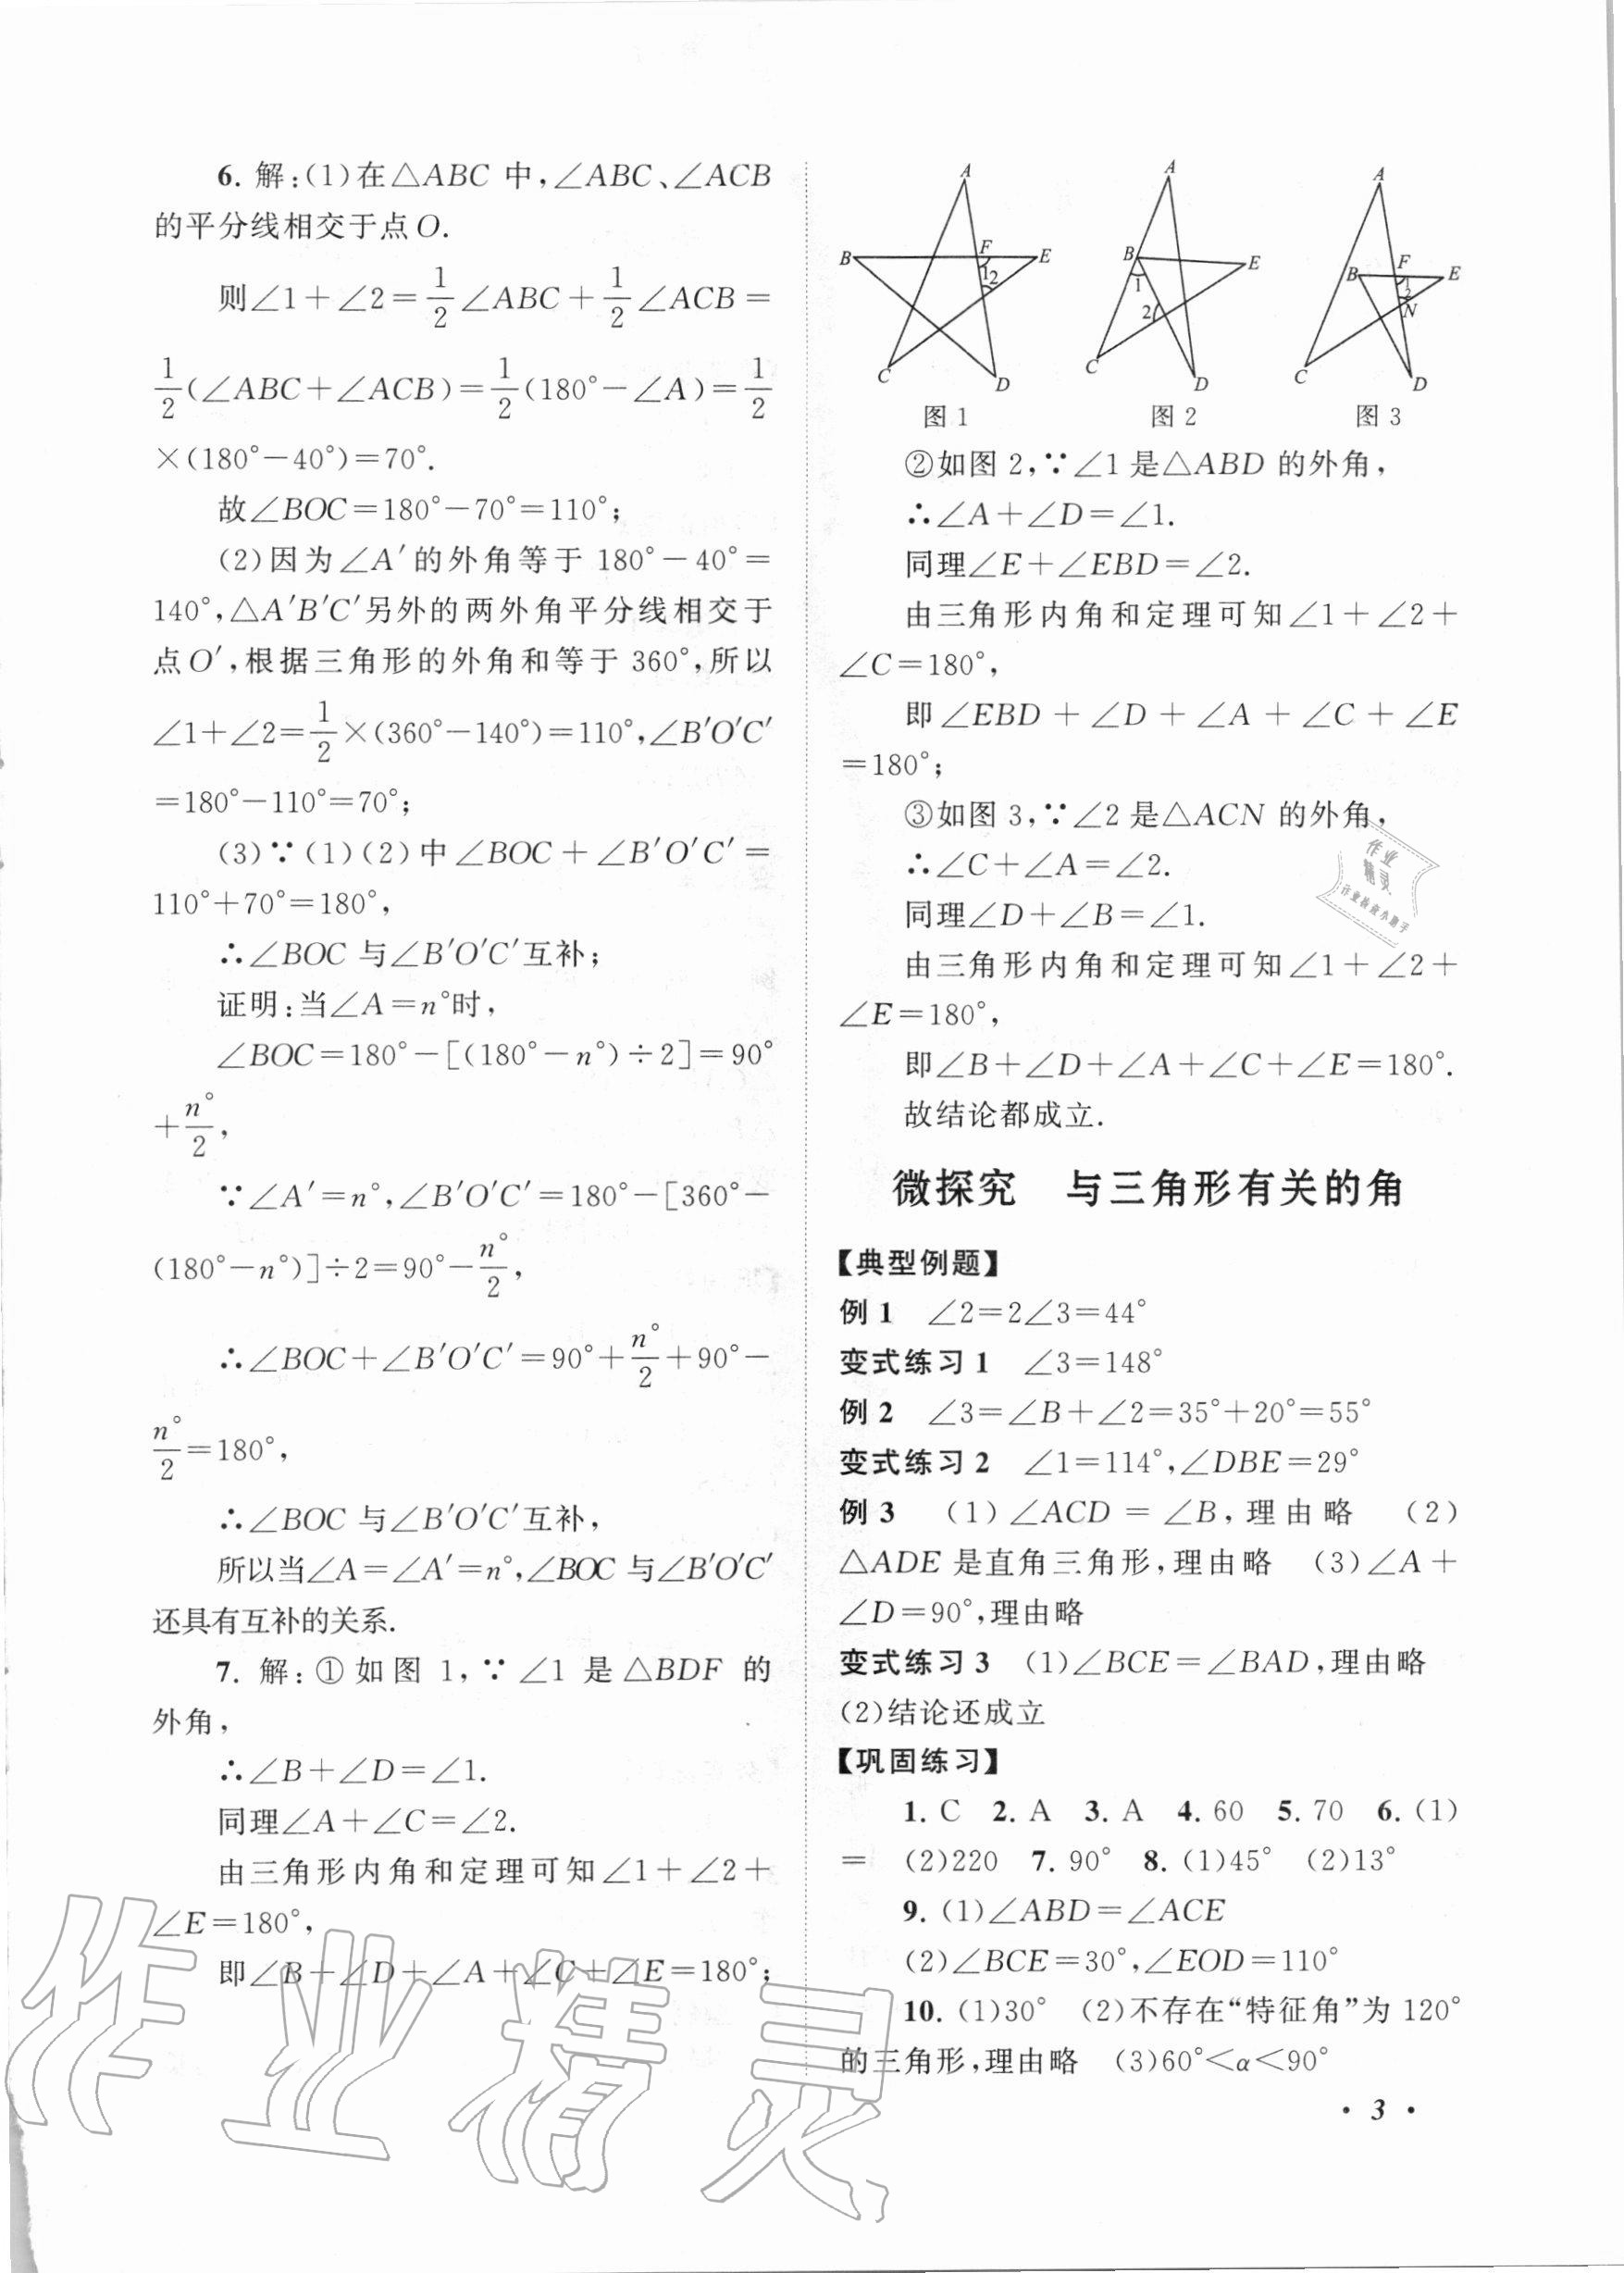 6. 解:(1)在△ABC 中,∠ABC、∠ACB
的平分线相交于点O.
则∠1+∠2=1/2∠ABC+1/2∠ACB=
1/2(∠ABC+∠ACB)=1/2(180°-∠A)=1/2
×(180°-40°)=70°.
故∠BOC=180°-70°=110°;
(2)因为∠A′的外角等于 180°-40°=
140°,△A′B′C′另外的两外角平分线相交于
点O′,根据三角形的外角和等于 360°,所以
∠1+∠2=1/2×(360°-140°)=110°,∠B′O′C′
=180°-110°=70°;
(3)∵(1)(2)中∠BOC+∠B′O′C′=
110°+70°=180°,
∴∠BOC 与∠B′O′C′互补;
证明:当∠A=n°时,
∠BOC=180°-[(180°-n°)÷2]=90°
+n°/2,
∵∠A′=n°,∠B′O′C′=180°-[360°-
(180°-n°)]÷2=90°-n°/2,
∴∠BOC+∠B′O′C′=90°+n°/2+90°-
n°/2=180°,
∴∠BOC 与∠B′O′C′互补,
所以当∠A=∠A′=n°,∠BOC 与∠B′O′C′
还具有互补的关系.
7. 解:①如图 1,∵∠1 是△BDF 的
外角,
∴∠B+∠D=∠1.
同理∠A+∠C=∠2.
由三角形内角和定理可知∠1+∠2+
∠E=180°,
即∠B+∠D+∠A+∠C+∠E=180°;
A
B
F
E
1
2
C
D
图 1
A
B
E
1
2
C
D
图 2
A
B
F
E
1
2
N
C
D
图 3
②如图 2,∵∠1 是△ABD 的外角,
∴∠A+∠D=∠1.
同理∠E+∠EBD=∠2.
由三角形内角和定理可知∠1+∠2+
∠C=180°,
即∠EBD+∠D+∠A+∠C+∠E
=180°;
③如图 3,∵∠2 是△ACN 的外角,
∴∠C+∠A=∠2.
同理∠D+∠B=∠1.
由三角形内角和定理可知∠1+∠2+
∠E=180°,
即∠B+∠D+∠A+∠C+∠E=180°.
故结论都成立.
微探究 与三角形有关的角
【典型例题】
例 1 ∠2=2∠3=44°
变式练习 1 ∠3=148°
例 2 ∠3=∠B+∠2=35°+20°=55°
变式练习 2 ∠1=114°,∠DBE=29°
例 3 (1)∠ACD=∠B,理由略 (2)
△ADE 是直角三角形,理由略 (3)∠A+
∠D=90°,理由略
变式练习 3 (1)∠BCE=∠BAD,理由略
(2)结论还成立
【巩固练习】
1. C 2. A 3. A 4. 60 5. 70 6. (1)
= (2)220 7. 90° 8. (1)45° (2)13°
9. (1)∠ABD=∠ACE
(2)∠BCE=30°,∠EOD=110°
10. (1)30° (2)不存在“特征角”为 120°
的三角形,理由略 (3)60°<α<90°
· 3 ·
作业精灵
作业
精灵